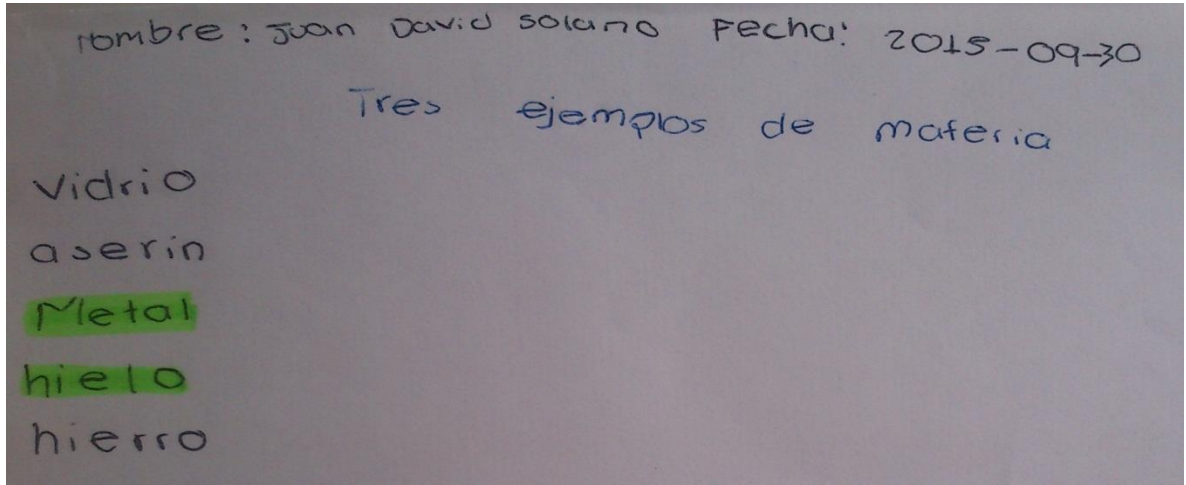 nombre: Juan David Solano Fecha: 2015-09-30
Tres ejemplos de materia
Vidrio
aserin
Metal
hielo
hierro